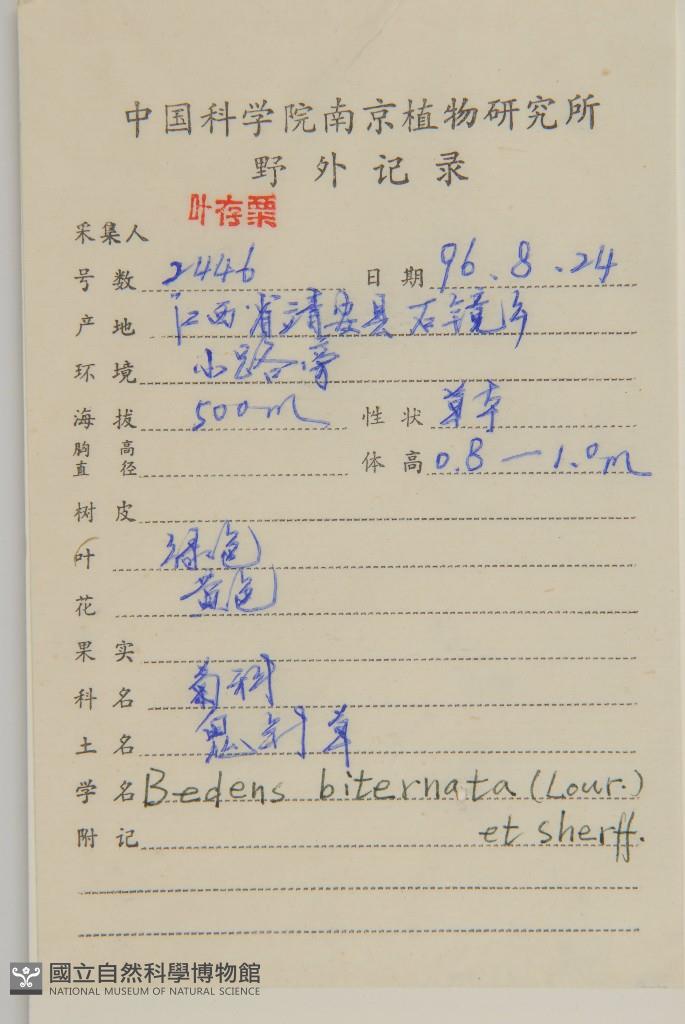 中国科学院南京植物研究所
野外记录
采集人 叶存粟
号数 2446 日期 96.8.24
产地 江西省靖安县石镜乡
环境 小路旁
海拔 500m 性状 草本
胸高直径 体高 0.8—1.0m
树皮
叶 绿色
花 黄色
果实
科名 菊科
土名 鬼针草
学名 Bedens biternata (Lour.)
附记 et sherff.
國立自然科學博物館
NATIONAL MUSEUM OF NATURAL SCIENCE